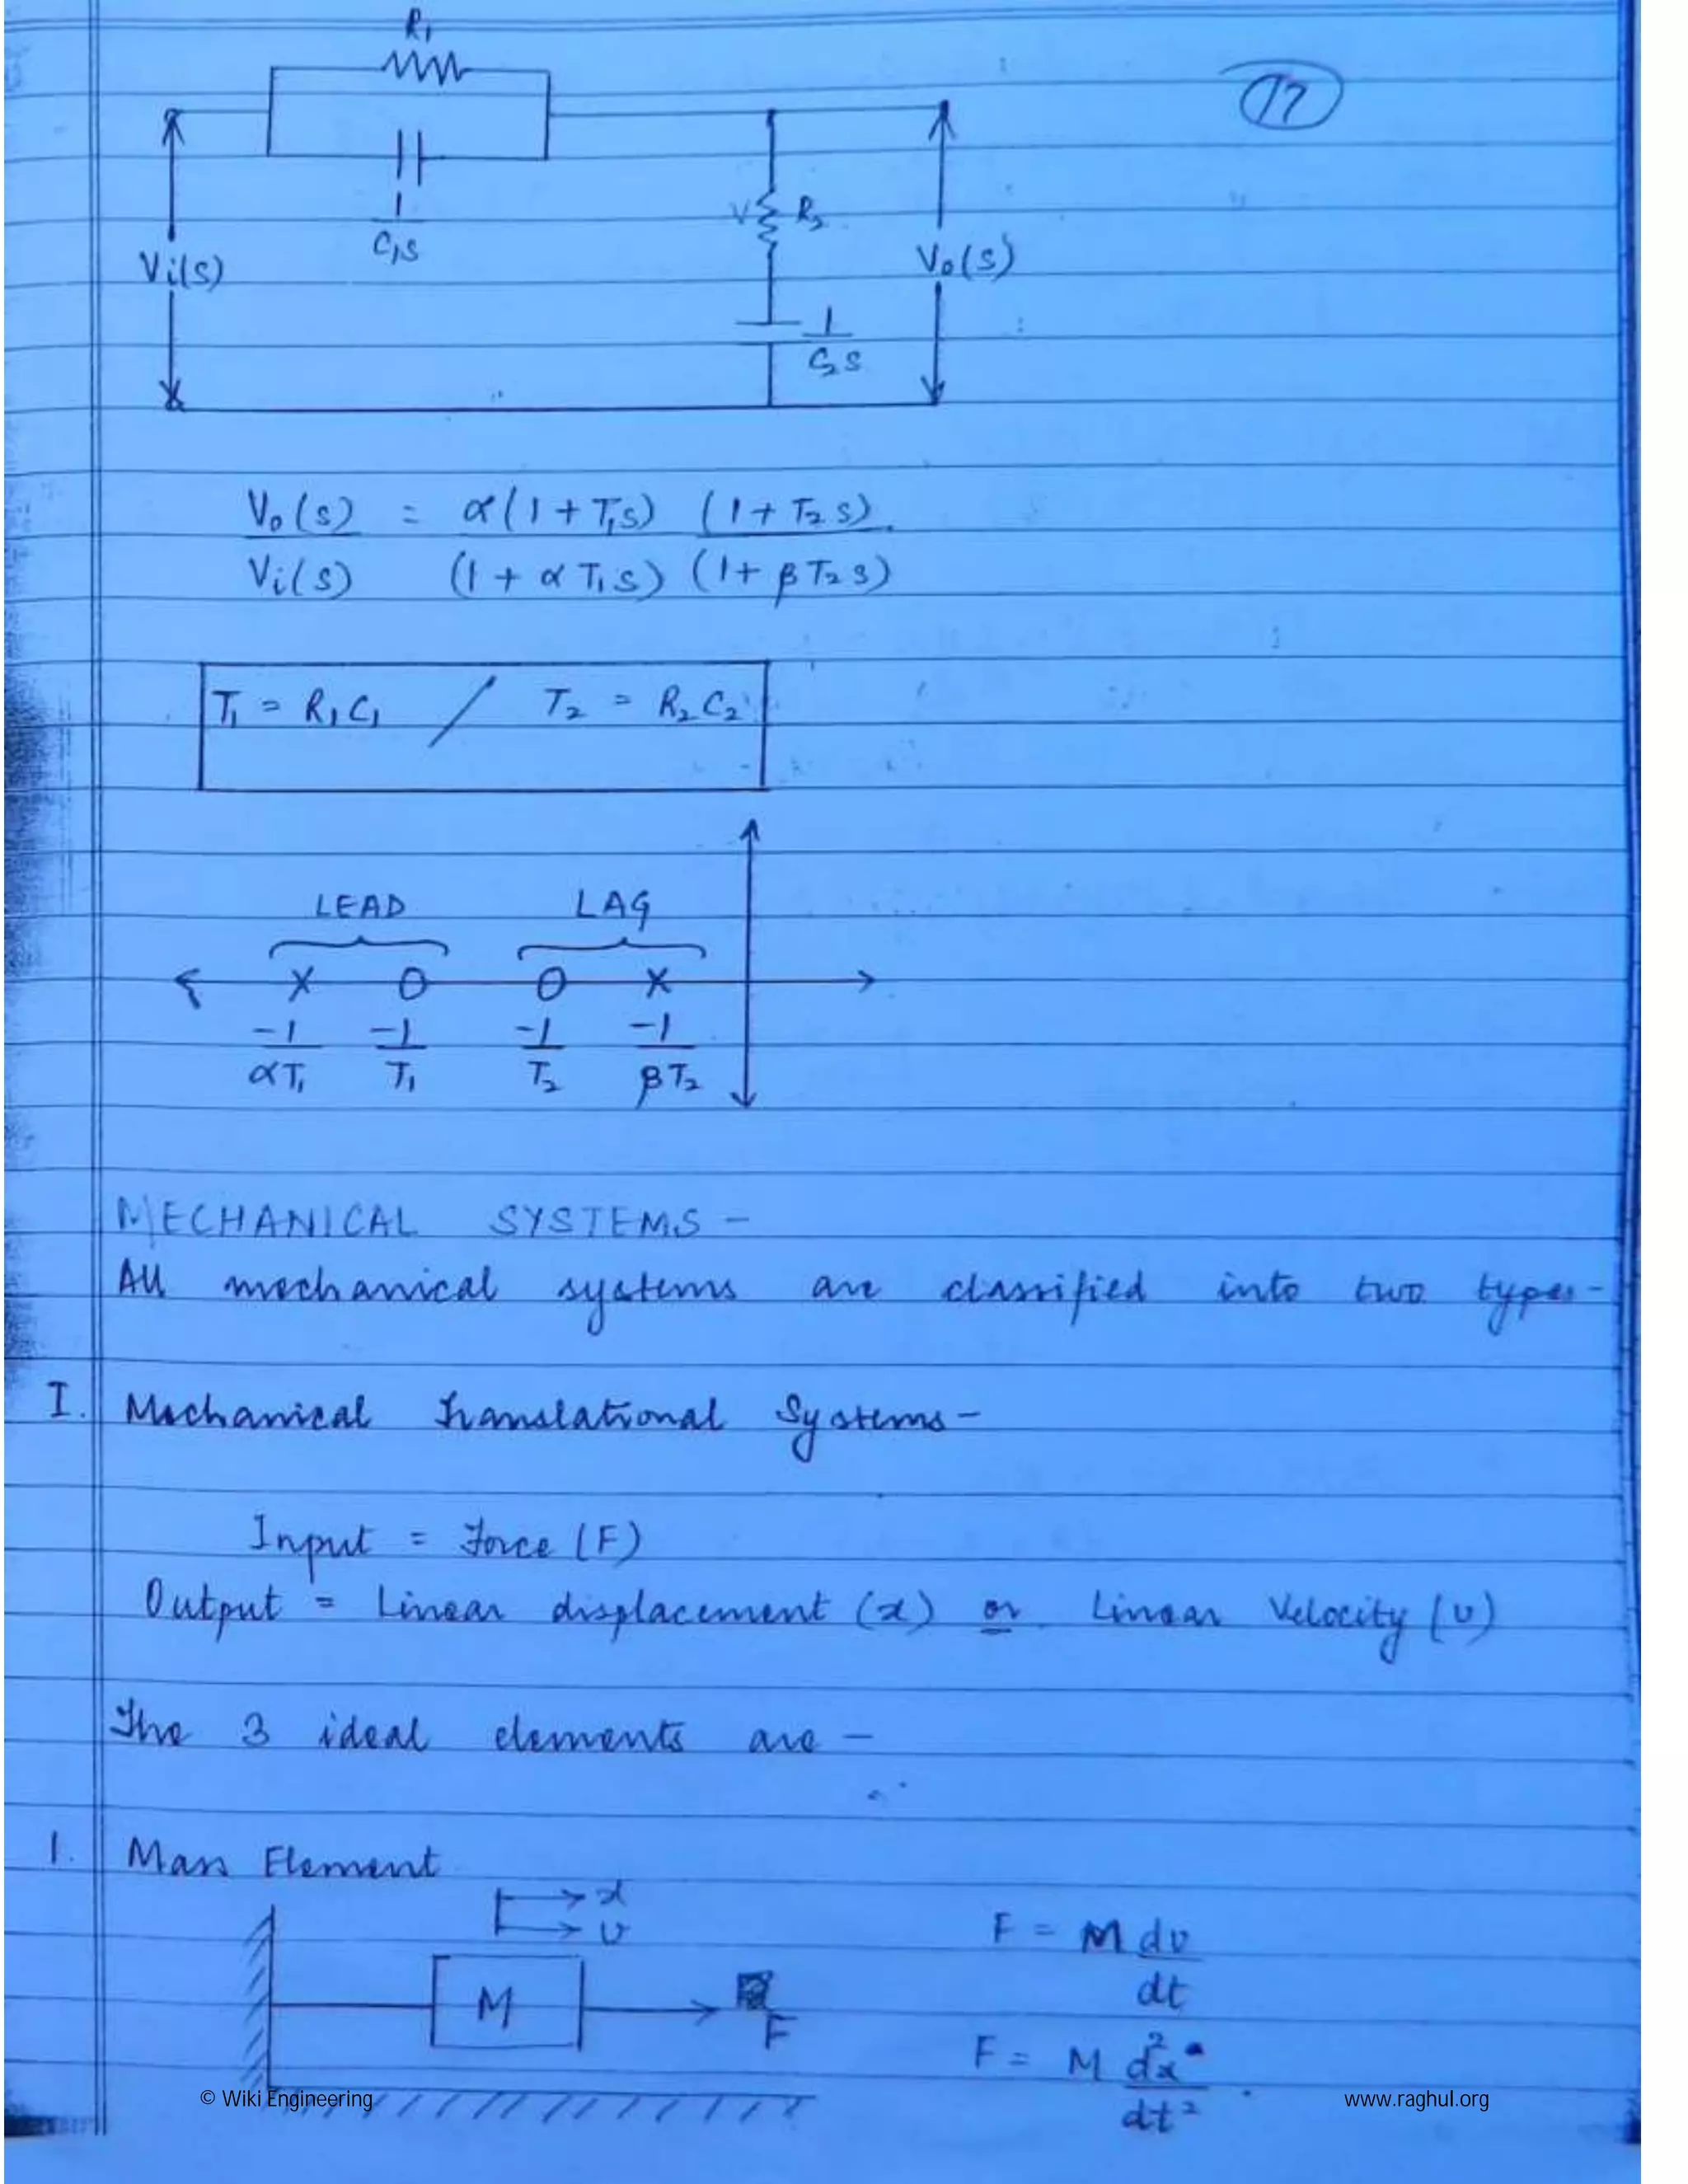 R₁
17
1
C₁s
R₂
Vi(s)
Vo(s)
1
C₂s
Vo(s) = α(1 + T₁s) (1 + T₂s)
Vi(s) (1 + αT₁s) (1 + βT₂s)
T₁ = R₁C₁ / T₂ = R₂C₂
LEAD LAG
-1 -1 -1 -1
αT₁ T₁ T₂ βT₂
MECHANICAL SYSTEMS -
All mechanical systems are classified into two types -
I. Mechanical Translational Systems -
Input = Force (F)
Output = Linear displacement (x) or Linear Velocity (v)
The 3 ideal elements are -
1. Mass Element
x
v
M
F
F = M dv
dt
F = M d²x
dt²
© Wiki Engineering
www.raghul.org